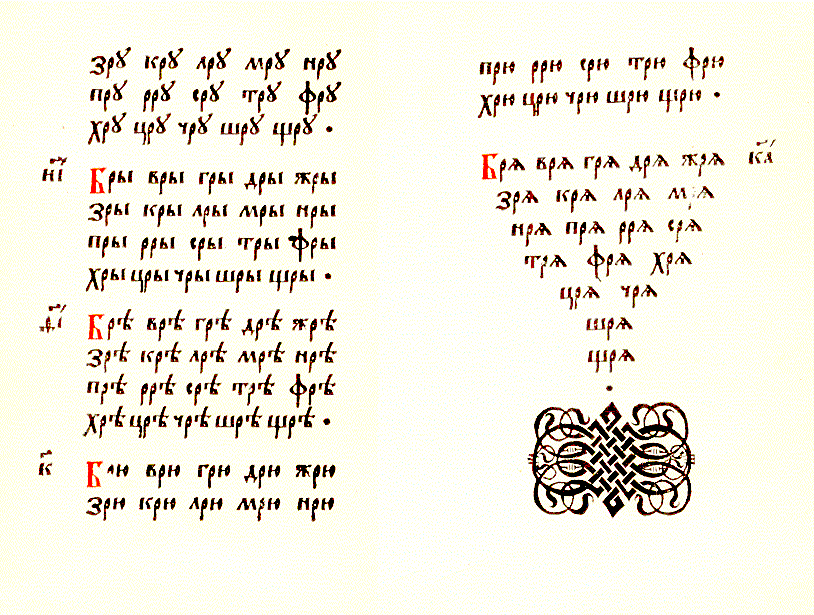 зрꙋ крꙋ лрꙋ мрꙋ нрꙋ
прꙋ ррꙋ срꙋ трꙋ фрꙋ
хрꙋ црꙋ чрꙋ шрꙋ щрꙋ .
н҃і
бры вры гры дры жры
зры кры лры мры нры
пры рры сры тры фры
хры цры чры шры щры .
брѣ врѣ грѣ дрѣ жрѣ
зрѣ крѣ лрѣ мрѣ нрѣ
прѣ ррѣ срѣ трѣ фрѣ
хрѣ црѣ чрѣ шрѣ щрѣ .
к҃
брю врю грю дрю жрю
зрю крю лрю мрю нрю
прю ррю срю трю фрю
хрю црю чрю шрю щрю .
брѧ врѧ грѧ дрѧ жрѧ
к҃а
зрѧ крѧ лрѧ мрѧ
нрѧ прѧ ррѧ срѧ
трѧ фрѧ хрѧ
црѧ чрѧ
шрѧ
щрѧ
.